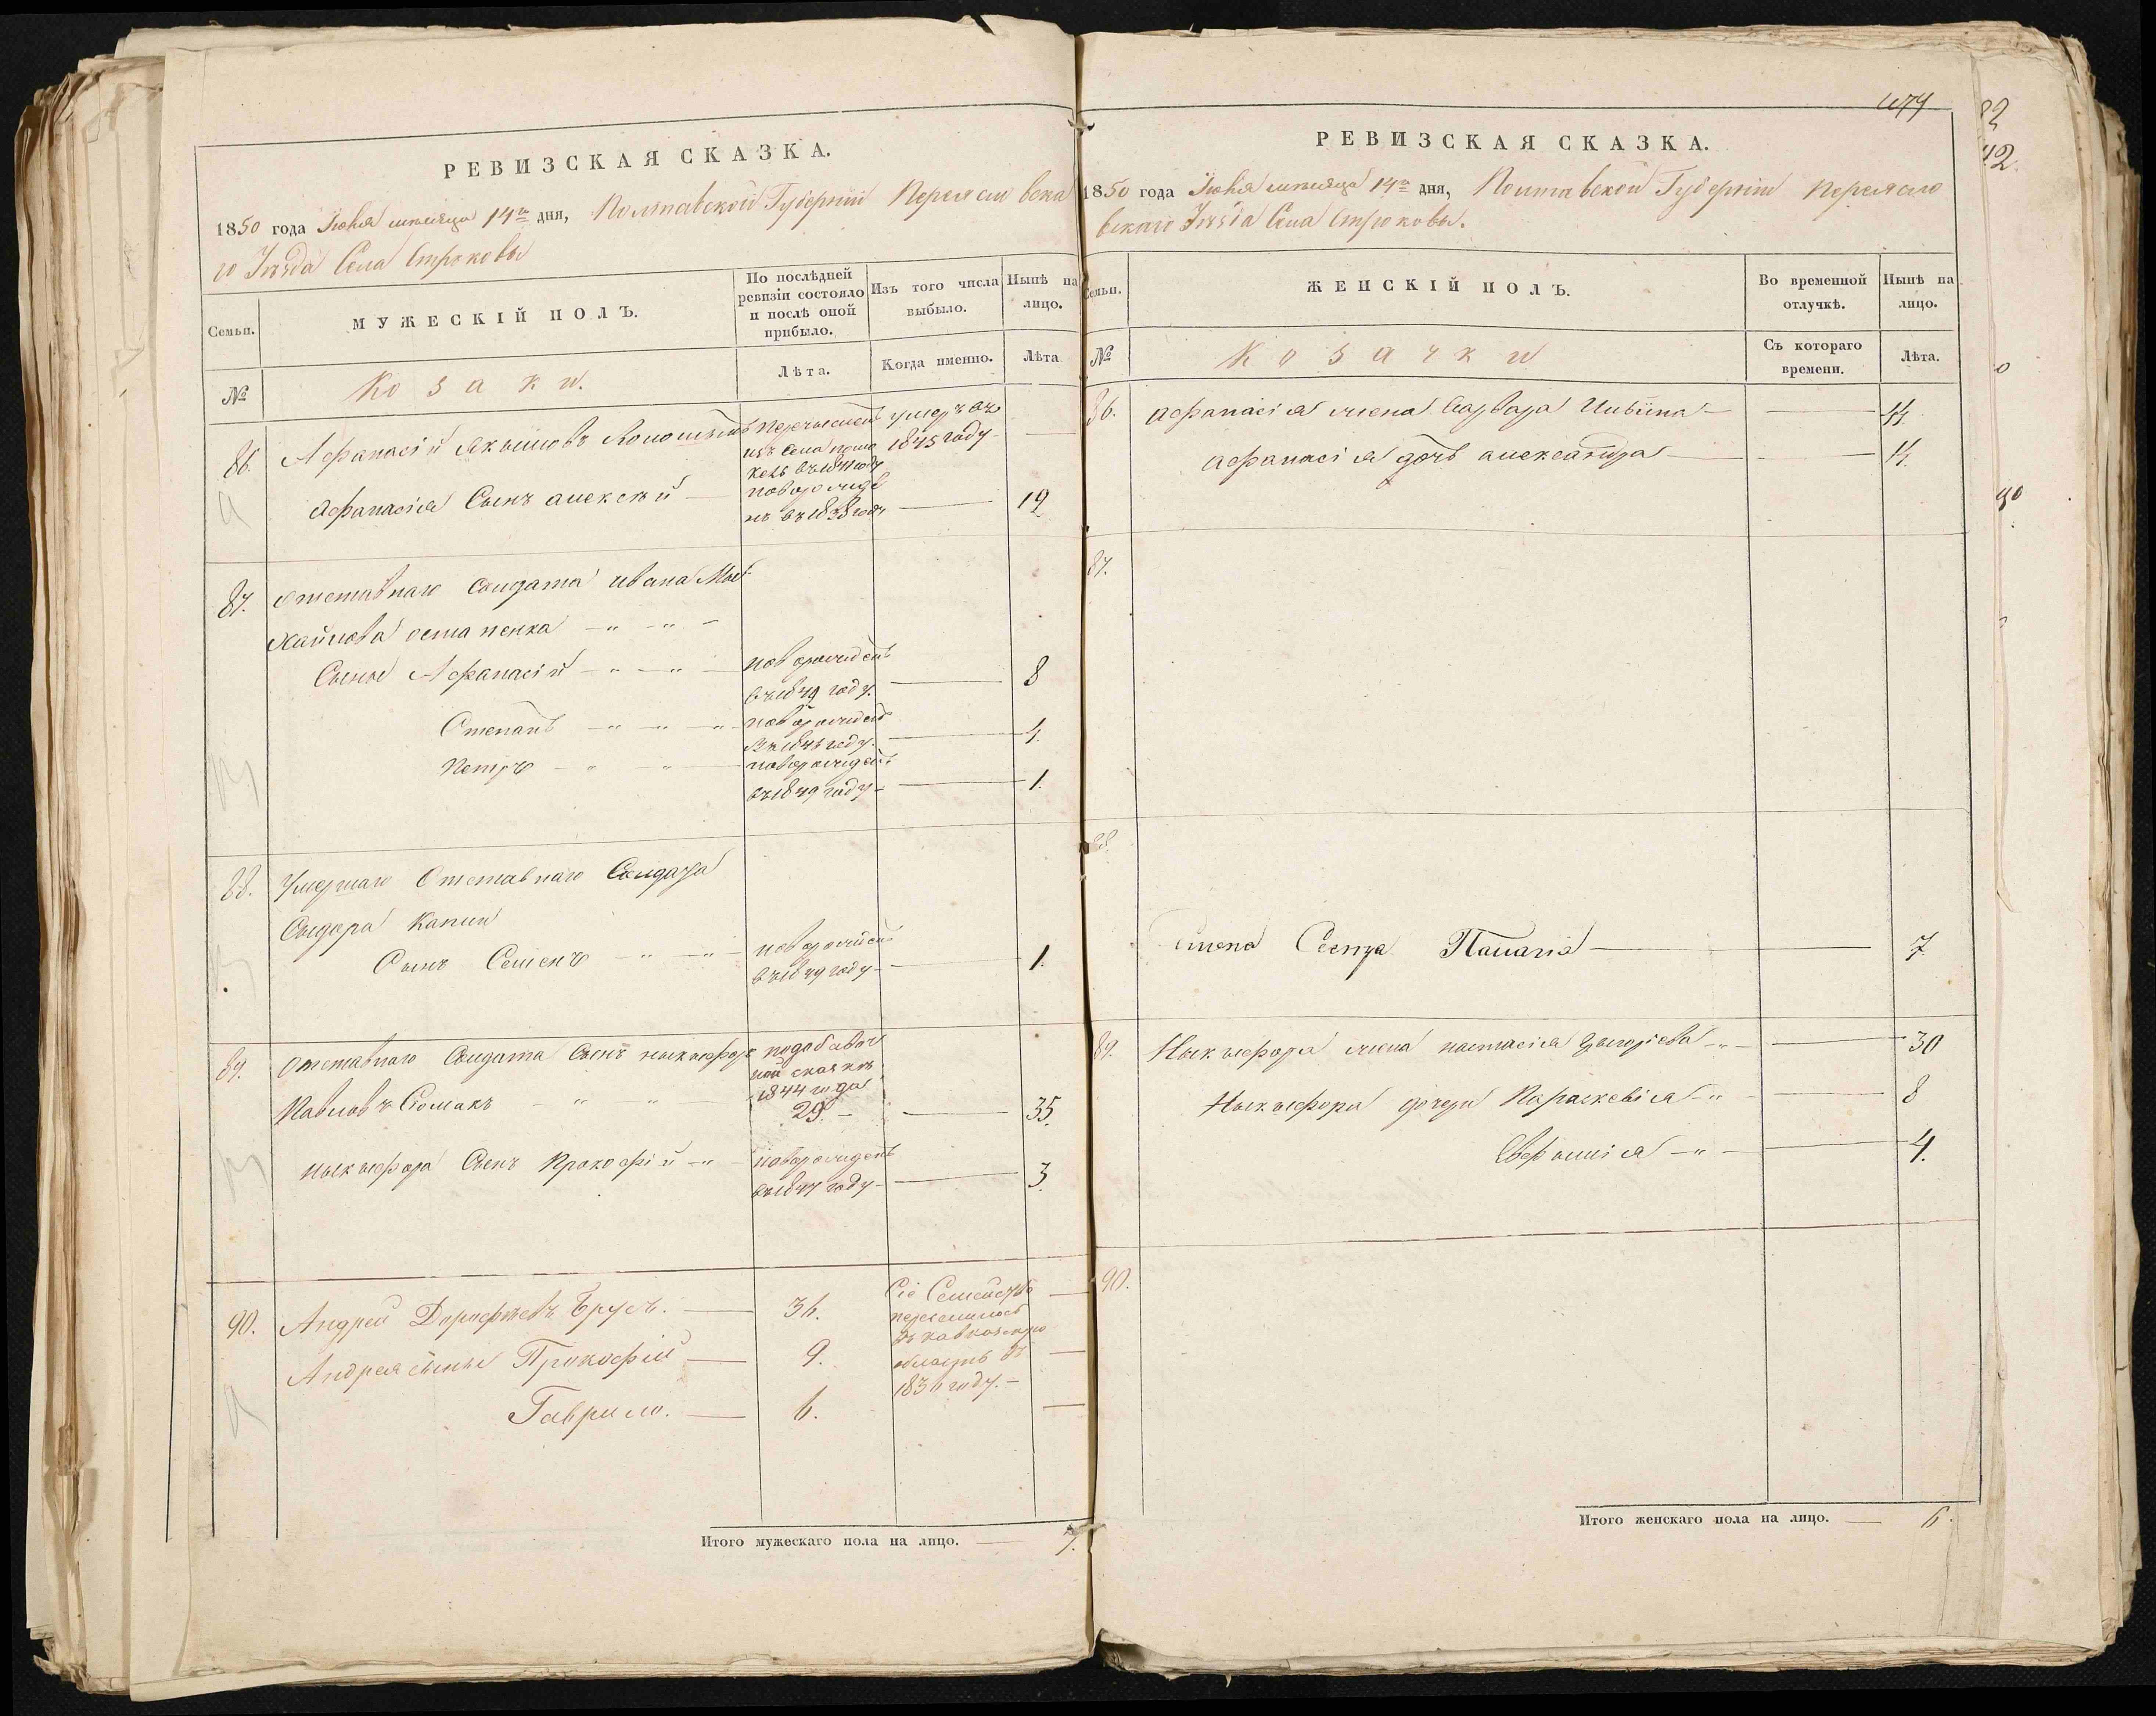 РЕВИЗСКАЯ СКАЗКА.
1850 года Июня месяца 14го дня, Полтавской Губерніи Переяславска
го Уѣзда Села Строковы
Семьи.
МУЖЕСКІЙ ПОЛЪ.
По послѣдней ревизіи состояло и послѣ оной прибыло.
Изъ того числа выбыло.
Нынѣ на лицо.
№
Козаки.
Лѣта.
Когда именно.
Лѣта
86.
Афанасій
умеръ въ
1845 году
Афанасія Сынъ алексѣй
новорожде
нъ въ 1838 году
19
87.
отставнаго Солдата ивана Мы
хайлова остапенка
Сыны Афанасій
новорожденъ
году.
8
Степанъ
новорожденъ
году.
4.
Петръ
новорожденъ
въ 1849 году
1.
88.
Умершаго Отставнаго Солдата
Сыдора Капли
Сынъ Семенъ
новорожденъ
въ 1849 году
1.
89.
Отставнаго Солдата Сынъ ныкыфоръ
Павловъ
по добавоч
ной сказкѣ
1844 года
29.
35.
ныкыфора Сынъ Прокофій
новорожденъ
въ 1847 году
3.
90.
Андрей Дорофѣевъ Брусъ.
36.
Сіе Семейство
переселилось
въ кавказскую
область въ
183 году.
Андрея сыны Прокофій
9.
Гаврило.
6.
Итого мужескаго пола на лицо.
7.
РЕВИЗСКАЯ СКАЗКА.
1850 года Июня месяца 14го дня, Полтавской Губерніи Переясло
вскаго Уѣзда Села Строковы.
Семьи.
ЖЕНСКІЙ ПОЛЪ.
Во временной отлучкѣ.
Нынѣ на лицо.
№
Козачки
Съ котораго времени.
Лѣта.
86.
Афанасія жена Варвара
44.
Афанасія дочь александра
14.
87.
88.
Сестра
7
89.
Ныкыфора жена настасія Грыгоріева
30
Ныкыфора дочери Параскевія
8
Евфымія
4.
90.
Итого женскаго пола на лицо.
6.